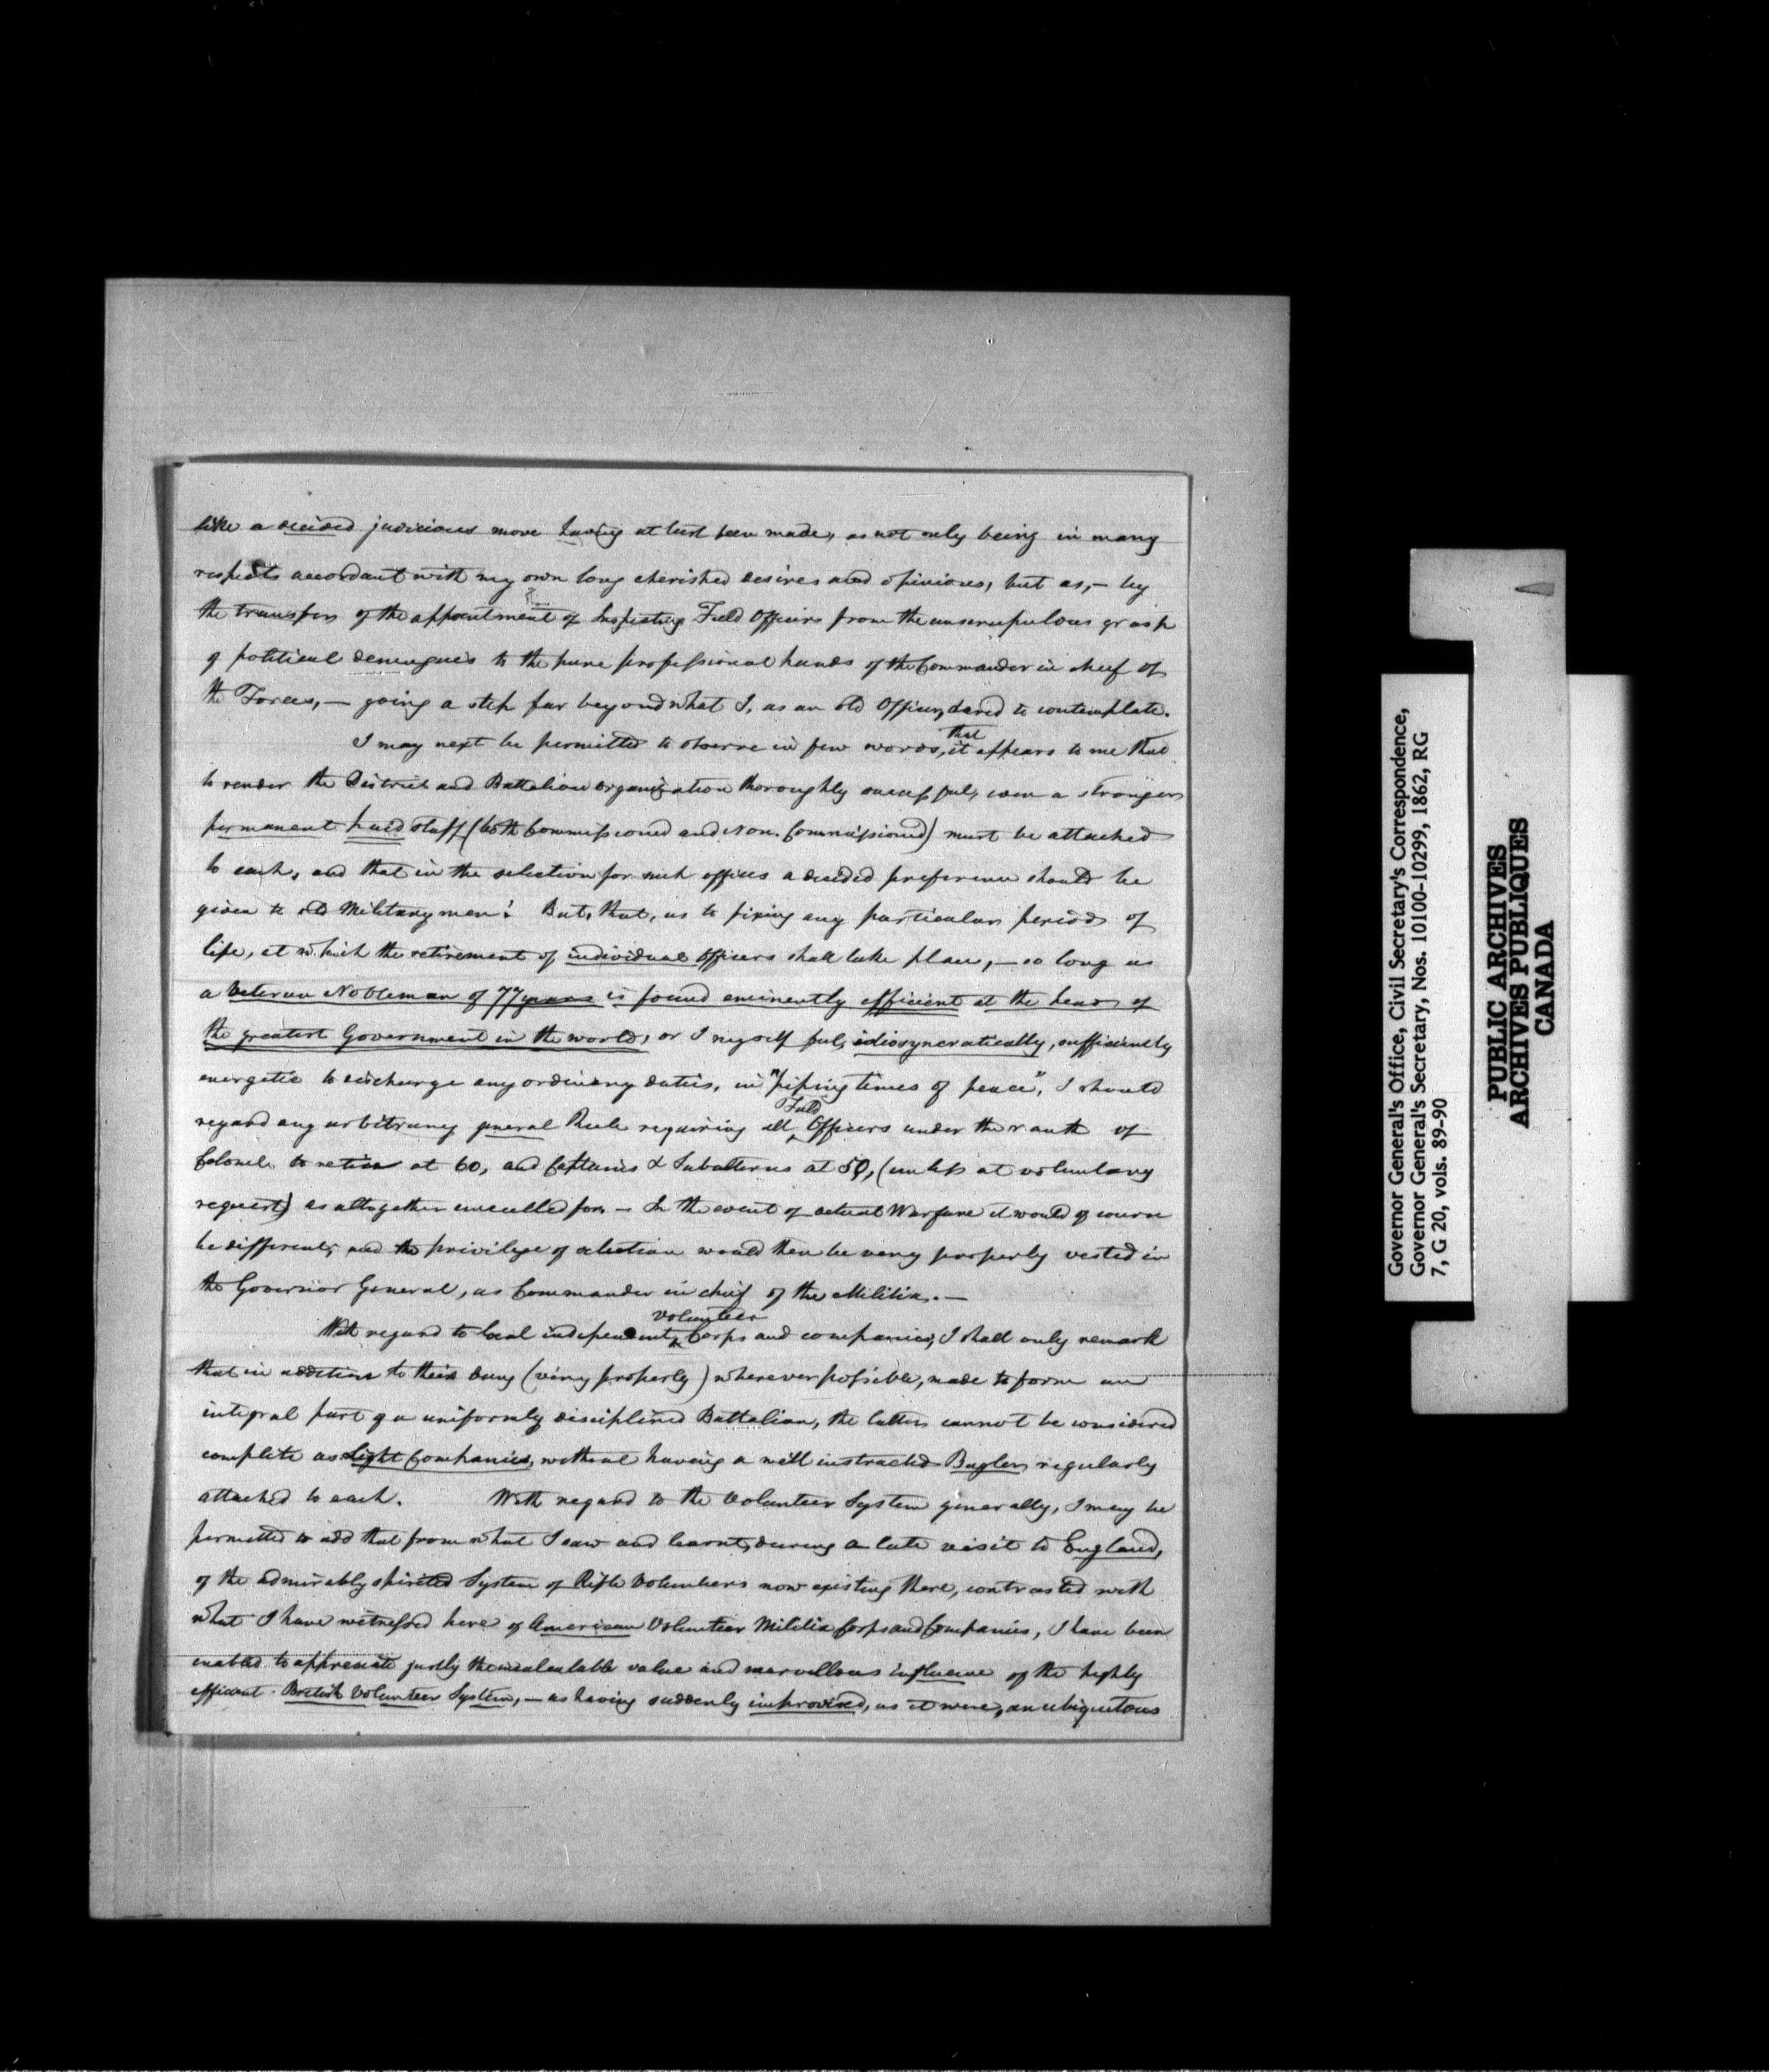 like a decided judicious move having at last been made, as not only being in many
respects accordant with my own long cherished desires and opinions, but as, – by
the transfer of the appointment of Inspecting Field Officers from the unscrupulous grasp
of political demagogues to the pure professional hands of the Commander in chief of
the Forces, – going a step far beyond what I, as an old Officer, dared to contemplate.
I may next be permitted to observe in few words, that it appears to me that
to render the District and Battalion organization thoroughly successful, even a stronger
permanent paid staff (both Commissioned and Non. Commissioned) must be attached
to each, and that in the selection for such offices a decided preference should be
given to old Military men! But, that, as to fixing any particular period of
life, at which the retirement of individual Officers shall take place, – so long as
a Veteran Nobleman of 77 years is found eminently efficient at the head of
the greatest Government in the world, or I myself feel, idiosyncratically, sufficiently
energetic to discharge any ordinary duties, in "piping times of peace", I should
regard any arbitrary general Rule requiring all Field Officers under the rank of
Colonel to retire at 60, and Captains & Subalterns at 50, (unless at voluntary
request) as altogether uncalled for. – In the event of actual Warfare it would of course
be different, and the privilege of selection would then be very properly vested in
the Governor General, as Commander in chief of the Militia. –
With regard to local independent volunteer Corps and companies, I shall only remark
that in addition to their being (very properly) wherever possible, made to form an
integral part of a uniformly disciplined Battalion, the latter cannot be considered
complete as Light Companies, without having a well instructed Bugler regularly
attached to each. With regard to the Volunteer System generally, I may be
permitted to add that from what I saw and learnt, during a late visit to England,
of the admirably spirited System of Rifle Volunteers now existing there, contrasted with
what I have witnessed here of American Volunteer Militia Corps and Companies, I have been
enabled to appreciate justly the incalculable value and marvellous influence of the highly
efficient British Volunteer System, – as having suddenly improvised, as it were, an ubiquitous
Governor General's Office, Civil Secretary's Correspondence,
Governor General's Secretary, Nos. 10100-10299, 1862, RG
7, G 20, vols. 89-90
PUBLIC ARCHIVES
ARCHIVES PUBLIQUES
CANADA